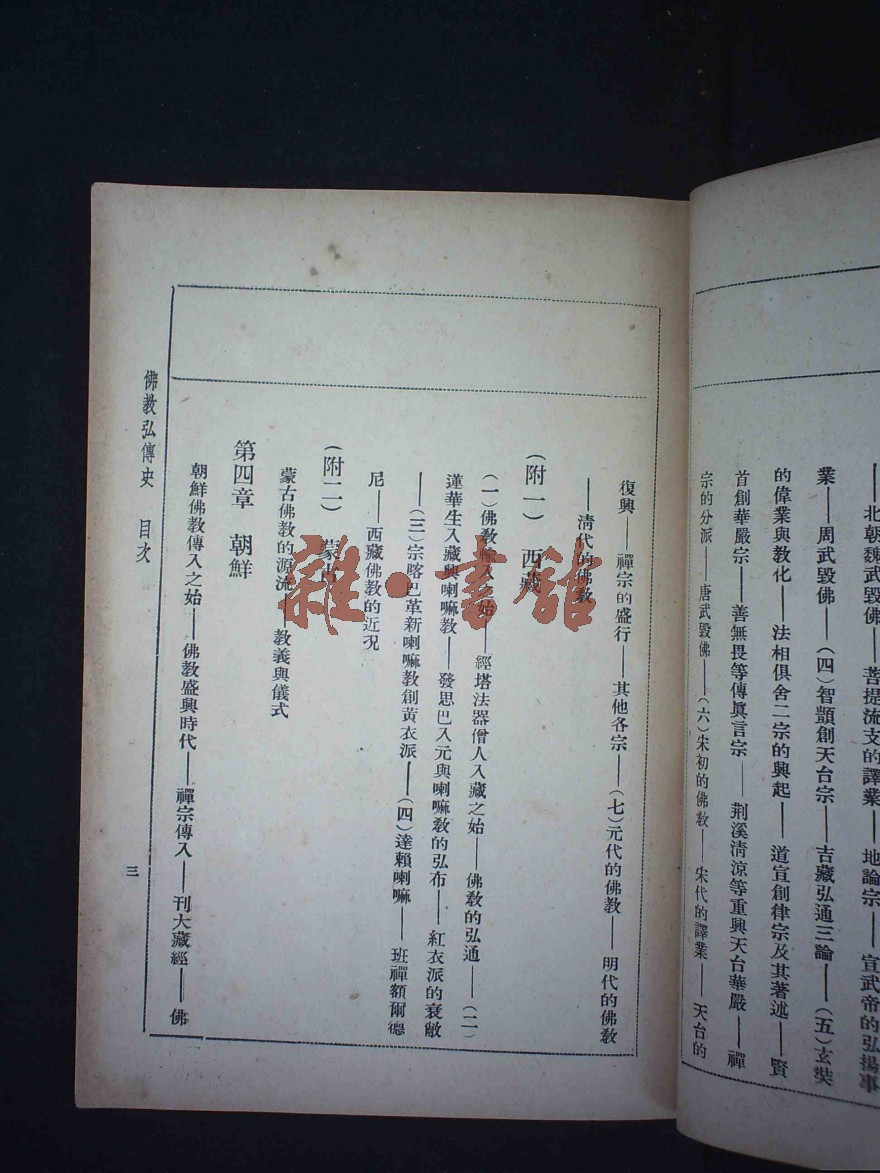 ——北朝魏武毀佛——菩提流支的譯業——地論宗——宣武帝的弘揚事
業——周武毀佛——(四)智顗創天台宗——吉藏弘通三論——(五)玄奘
的偉業與教化——法相俱舍二宗的興起——道宣創律宗及其著述——賢
首創華嚴宗——善無畏等傳眞言宗——荆溪清涼等重興天台華嚴——禪
宗的分派——唐武毀佛——(六)宋初的佛教——宋代的譯業——天台的
復興——禪宗的盛行——其他各宗——(七)元代的佛教——明代的佛教
——清代的佛教
(附一) 西藏
(一)佛教輸入之始——經塔法器僧人入藏之始——佛教的弘通——(二)
蓮華生入藏興喇嘛教——發思巴入元與喇嘛教的弘布——紅衣派的衰敝
——(三)宗喀巴革新喇嘛教創黃衣派——(四)達賴喇嘛——班禪額爾德
尼——西藏佛教的近況
(附二) 蒙古
蒙古佛教的源流——教義與儀式
第四章 朝鮮
朝鮮佛教傳入之始——佛教盛興時代——禪宗傳入——刊大藏經——佛
佛教弘傳史 目次
三
雜·書館